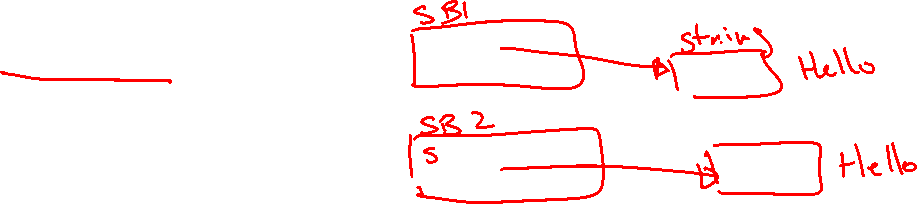 SB1
string Hello
SB2
s
Hello